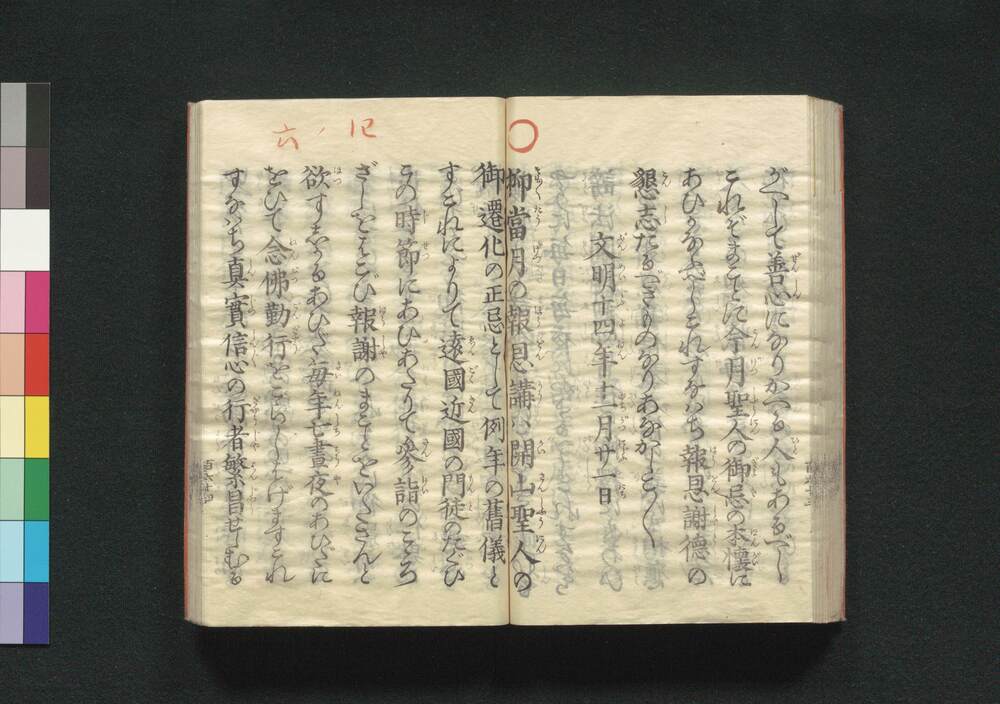 がへして善心になりかへる人もあるべし
これぞまことに今月聖人の御忌の本懐に
あひかなふべしこれすなはち報恩謝徳の
懇志たるべきものなりあなかしこ〳〵
文明十四年十一月廿一日
〇
抑當月の報恩講は開山聖人の
御遷化の正忌として例年の舊儀と
すこれによりて遠國近國の門徒のたぐひ
この時節にあひあたりて参詣のこゝろ
ざしをはこび報謝のまことをいたさんと
欲すしかるあひだ毎年七晝夜のあひだに
をひて念佛勤行をこらしはげますこれ
すなはち真實信心の行者繁昌せしむる
六
百六十四